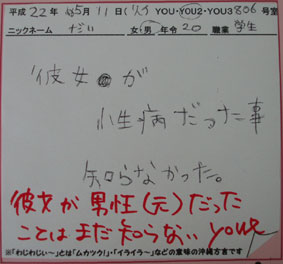 平成22年 5月11日(火) YOU・YOU2・YOU3 806号室
ニックネーム だい 女・男 年令20 職業 学生
彼女が
小生病だった事
知らなかった。
彼女が男性(元)だった
ことはまだ知らない you2
※「わじわじぃ~」とは「ムカツク!」・「イライラ~」などの意味の沖縄方言です